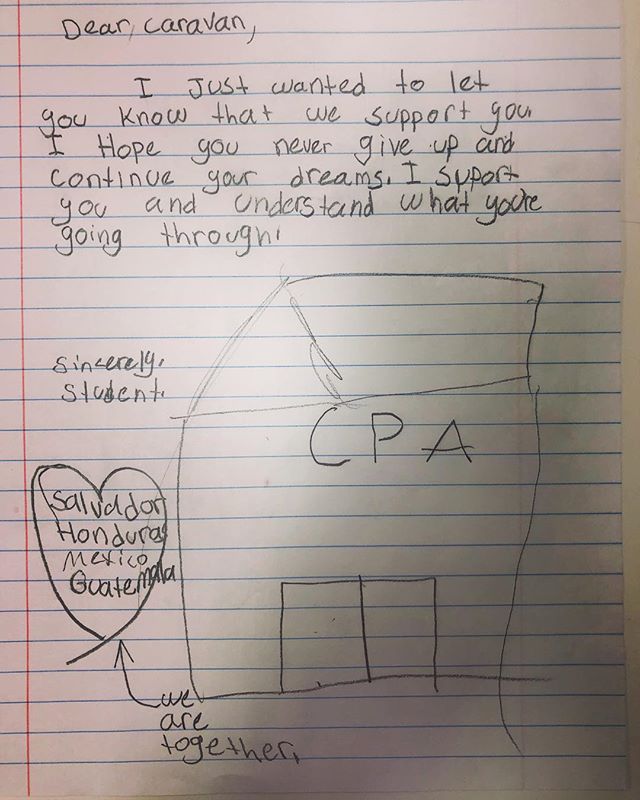 Dear, Caravan,
I Just wanted to let
you know that we support you.
I Hope you never give up and
continue your dreams. I suport
you and understand what you're
going through!
Sincerely,
Student.
CPA
Salvador
Honduras
Mexico
Guatemala
we
are
together.